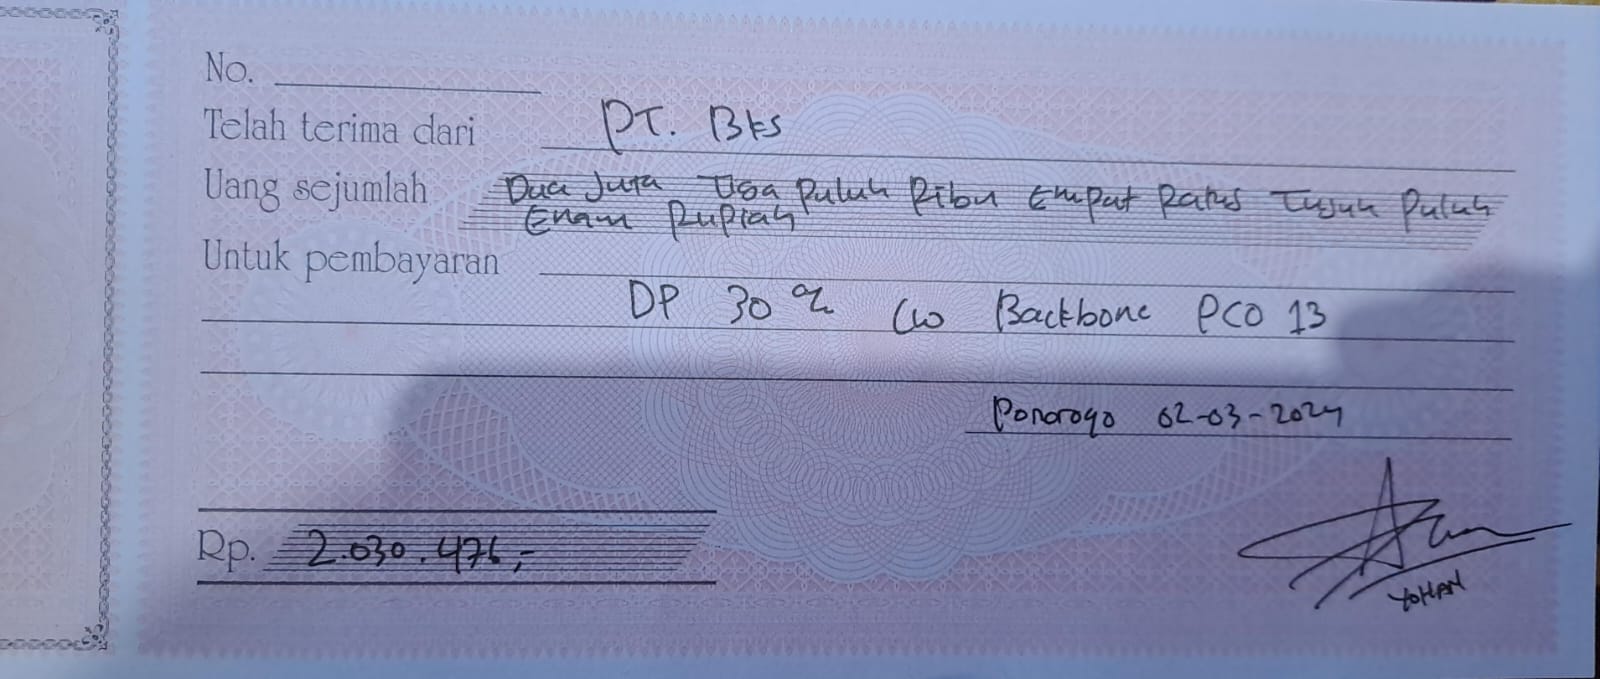 No.
Telah terima dari PT. BKS
Uang sejumlah Dua Juta Tiga Puluh Ribu Empat Ratus Tujuh Puluh
Enam Rupiah
Untuk pembayaran
DP 30 % CW Backbone PCO 13
Ponorogo 02-03-2024
Rp. 2.030.476,-
YOHAN